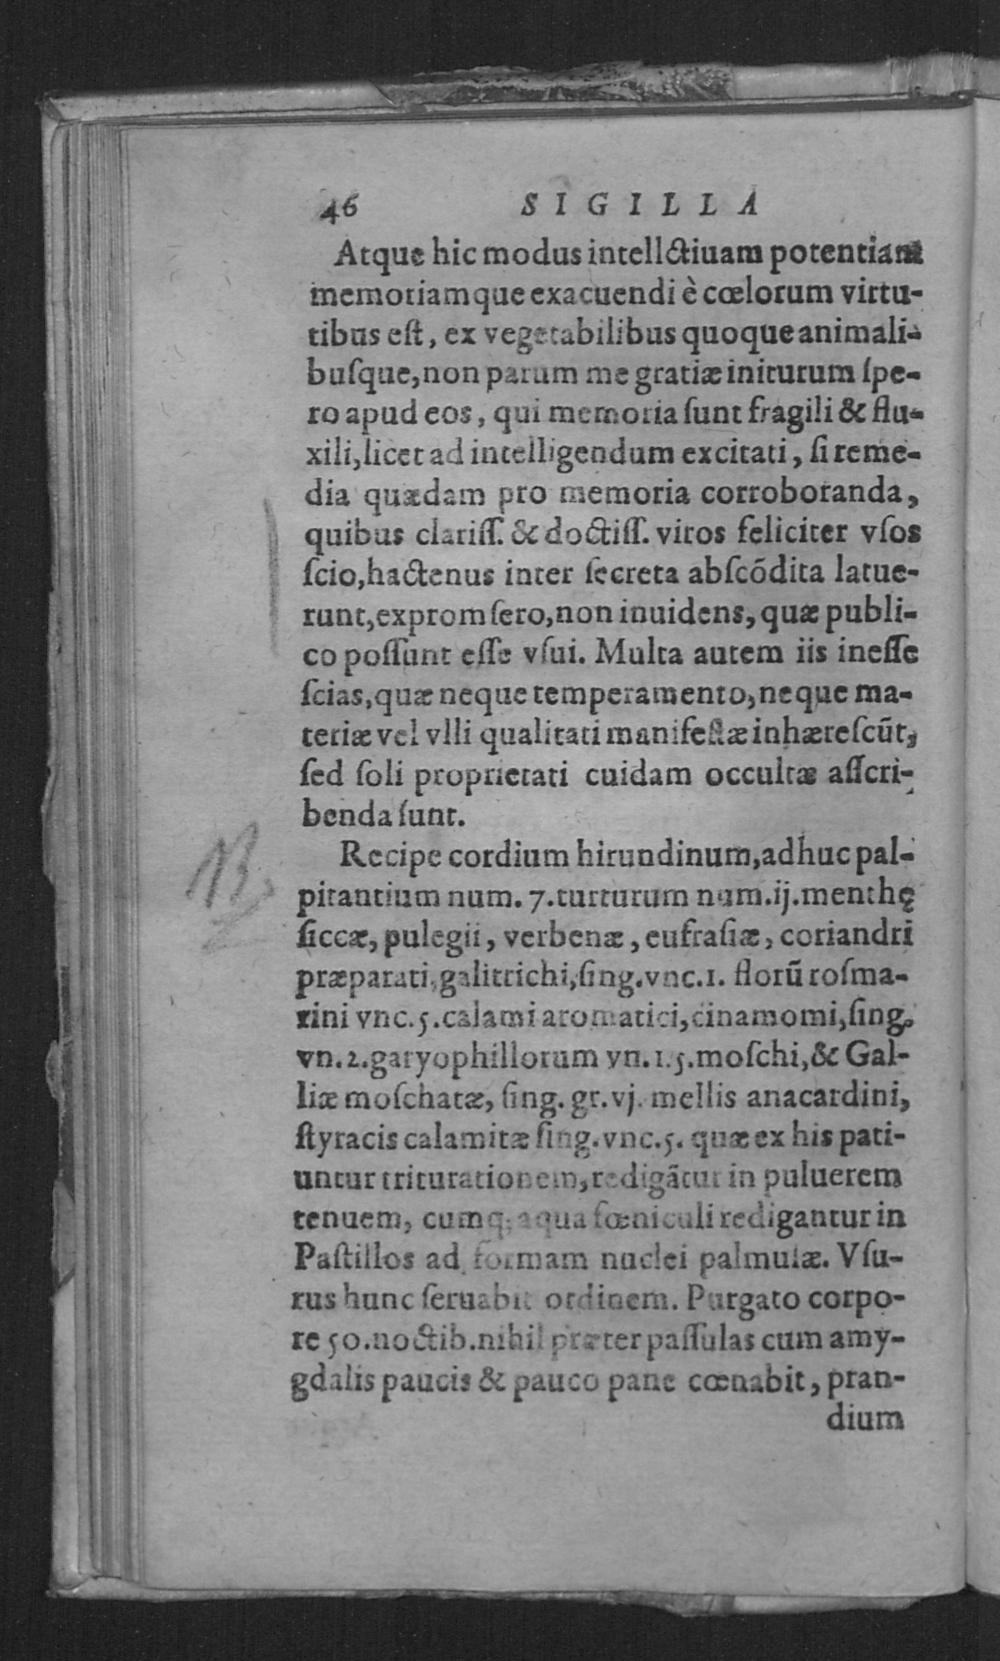 46 SIGILLA
Atque hic modus intellctiuam potentiam
memoriamque exacuendi è cœlorum virtu-
tibus est, ex vegetabilibus quoque animali-
busque, non parum me gratiæ initurum spe-
ro apud eos, qui memoria sunt fragili & flu-
xili, licet ad intelligendum excitati, si reme-
dia quædam pro memoria corroboranda,
quibus clariss. & doctiss. viros feliciter vsos
scio, hactenus inter secreta abscōdita latue-
runt, expromsero, non inuidens, quæ publi-
co possunt esse vsui. Multa autem iis inesse
scias, quæ neque temperamento, neque ma-
teriæ vel vlli qualitati manifestæ inhærescūt,
sed soli proprietati cuidam occultæ asscri-
benda sunt.
Recipe cordium hirundinum, adhuc pal-
pitantium num. 7. turturum num. ij. menthę
siccæ, pulegii, verbenæ, eufrasiæ, coriandri
præparati, galitrichi, sing. vnc. 1. florū rosma-
rini vnc. 5. calami aromatici, cinamomi, sing.
vn. 2. garyophillorum vn. 1.5. moschi, & Gal-
liæ moschatæ, sing. gr. vj. mellis anacardini,
styracis calamitæ sing. vnc. 5. quæ ex his pati-
untur triturationem, redigātur in puluerem
tenuem, cumq; aqua fœniculi redigantur in
Pastillos ad formam nuclei palmulæ. Vsu-
rus hunc seruabit ordinem. Purgato corpo-
re 50. noctib. nihil præter passulas cum amy-
gdalis paucis & pauco pane cœnabit, pran-
dium